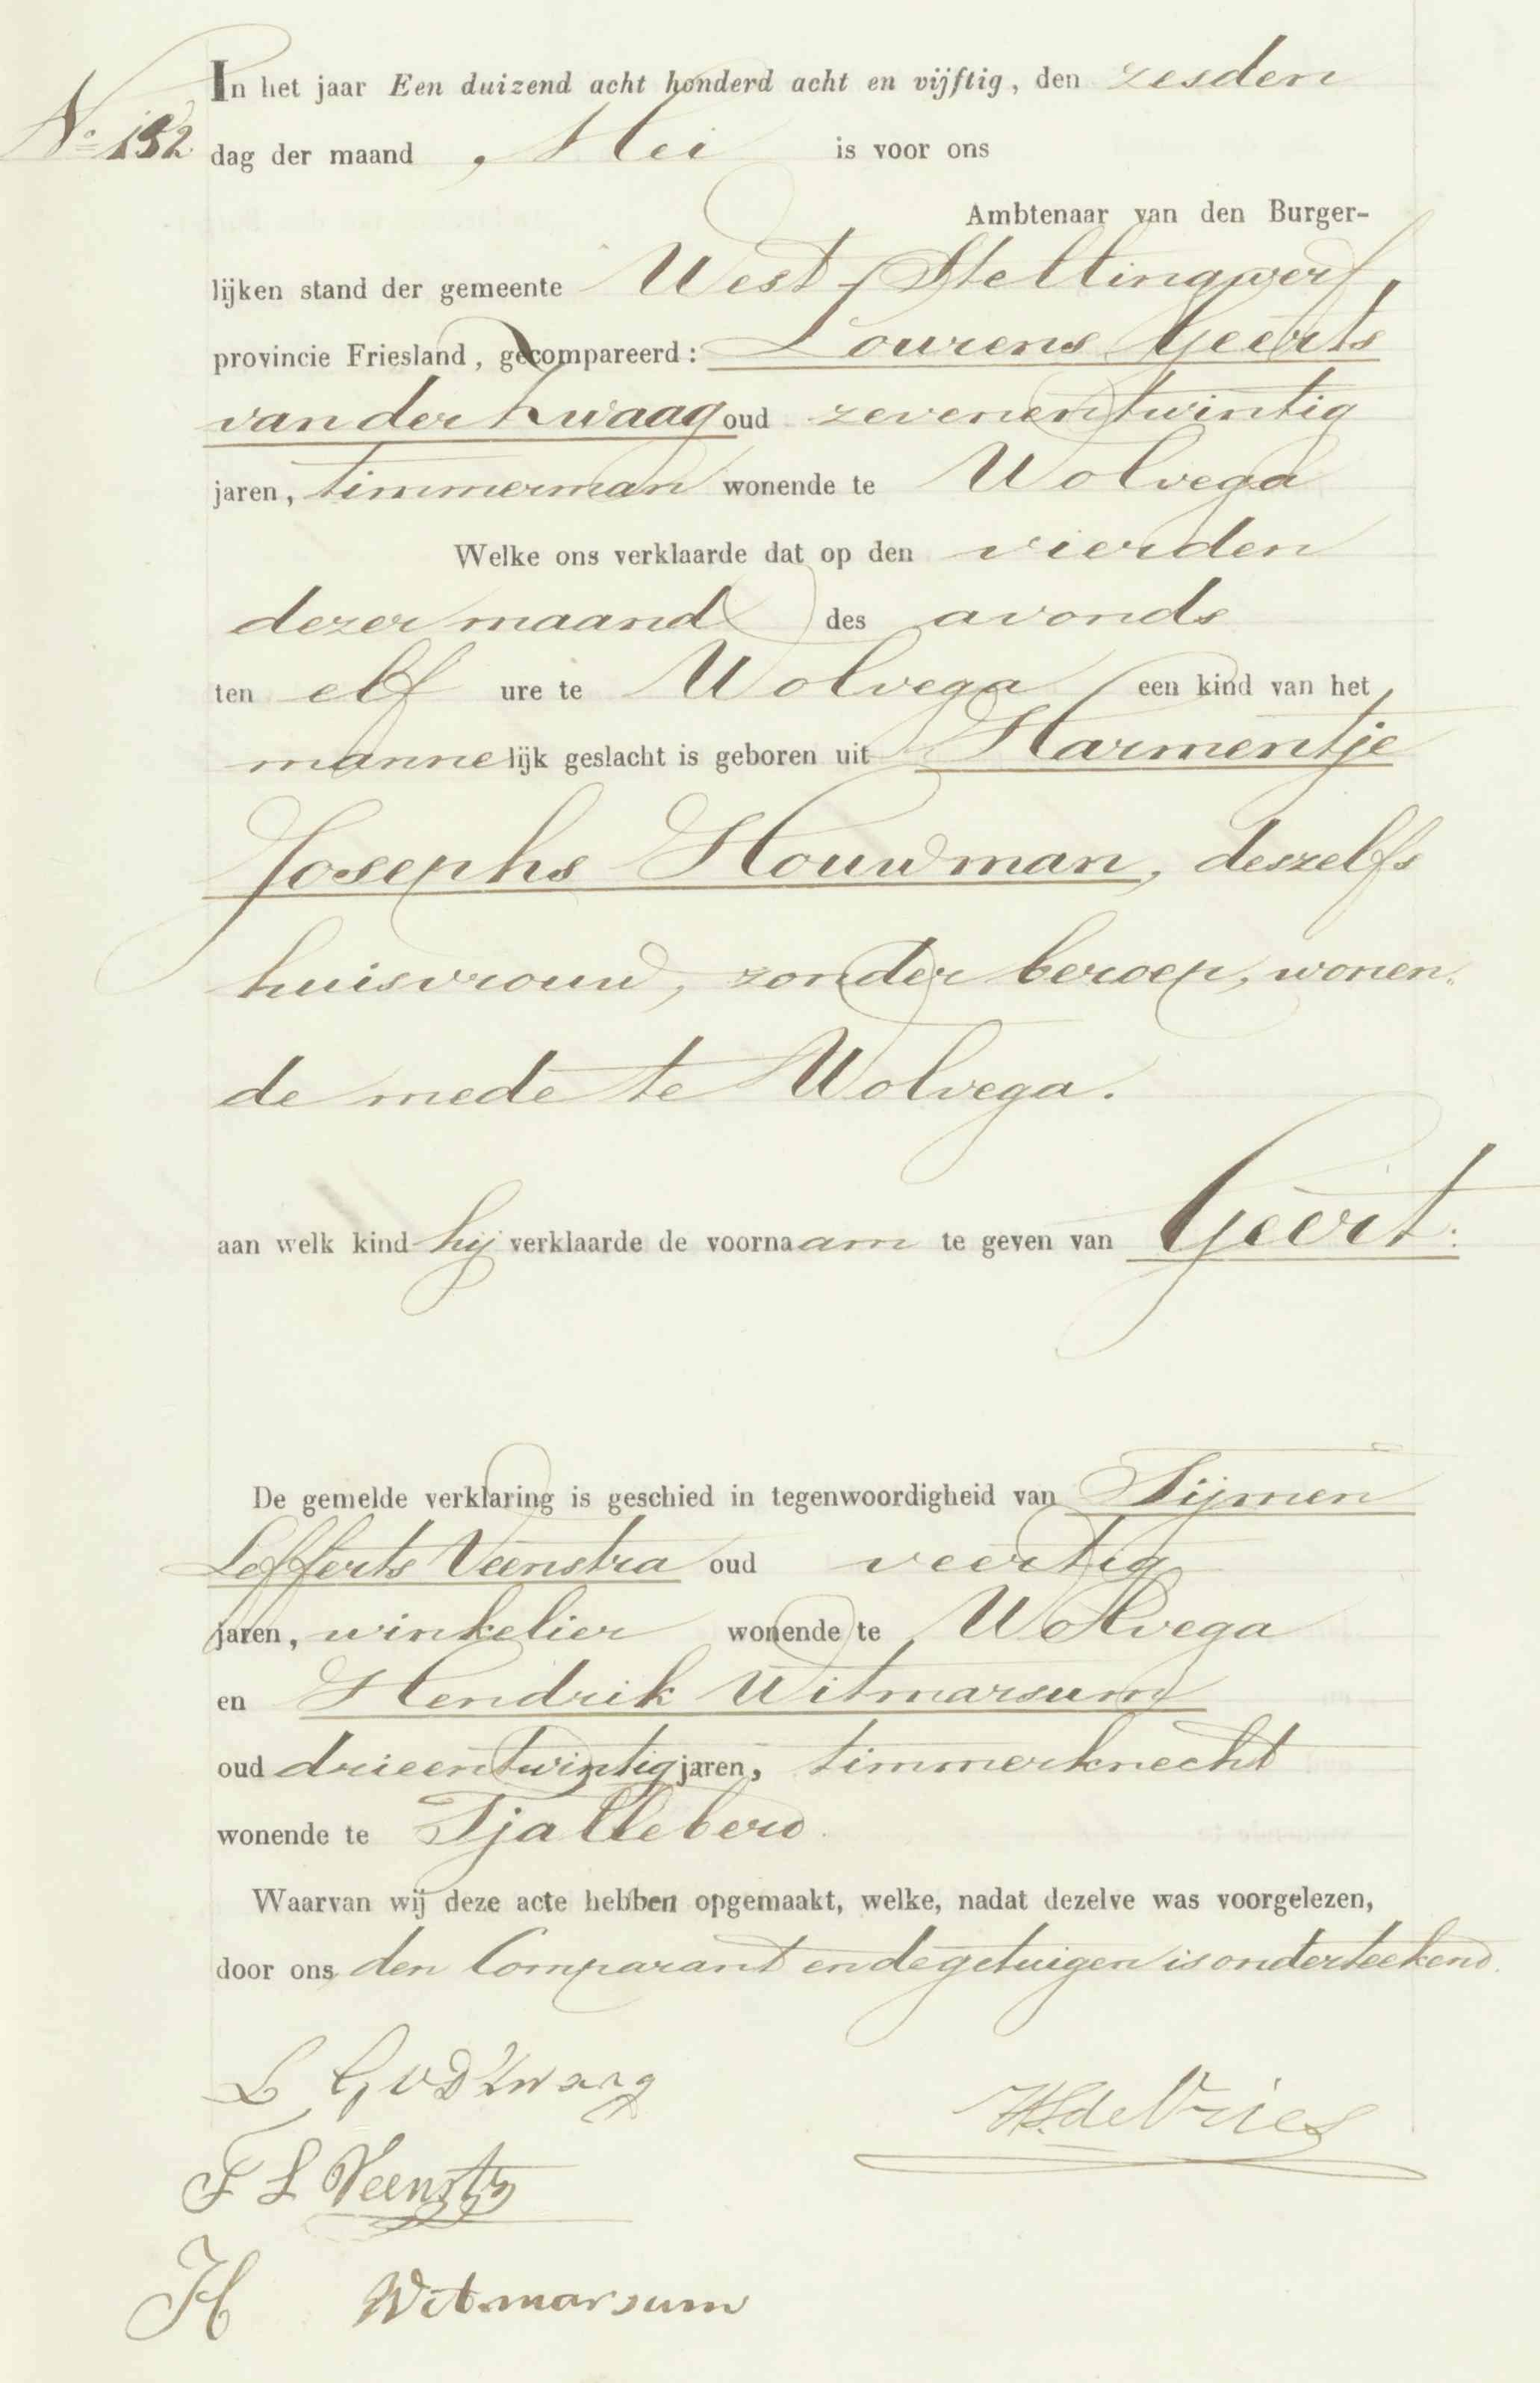 In het jaar Een duizend acht honderd acht en vijftig, den zesden
No 132 dag der maand Mei is voor ons
Ambtenaar van den Burger-
lijken stand der gemeente West-Stellingwerf,
provincie Friesland, gecompareerd: Lourens Geerts
van der Zwaag oud zevenentwintig
jaren, timmerman wonende te Wolvega
Welke ons verklaarde dat op den vierden
dezer maand des avonds
ten elf ure te Wolvega een kind van het
mannelijk geslacht is geboren uit Harmentje
Josephs Houwman, deszelfs
huisvrouw, zonder beroep, wonen„
de mede te Wolvega.
aan welk kind hij verklaarde de voornaam te geven van Geert.
De gemelde verklaring is geschied in tegenwoordigheid van Tijmen
Lefferts Veenstra oud veertig
jaren, winkelier wonende te Wolvega
en Hendrik Witmarsum
oud drieentwintig jaren, timmerknecht
wonende te Tjalleberd.
Waarvan wij deze acte hebben opgemaakt, welke, nadat dezelve was voorgelezen,
door ons den Comparant en de getuigen is onderteekend.
L G v D Zwaag
de Vries
T L Veenstra
H Witmarsum